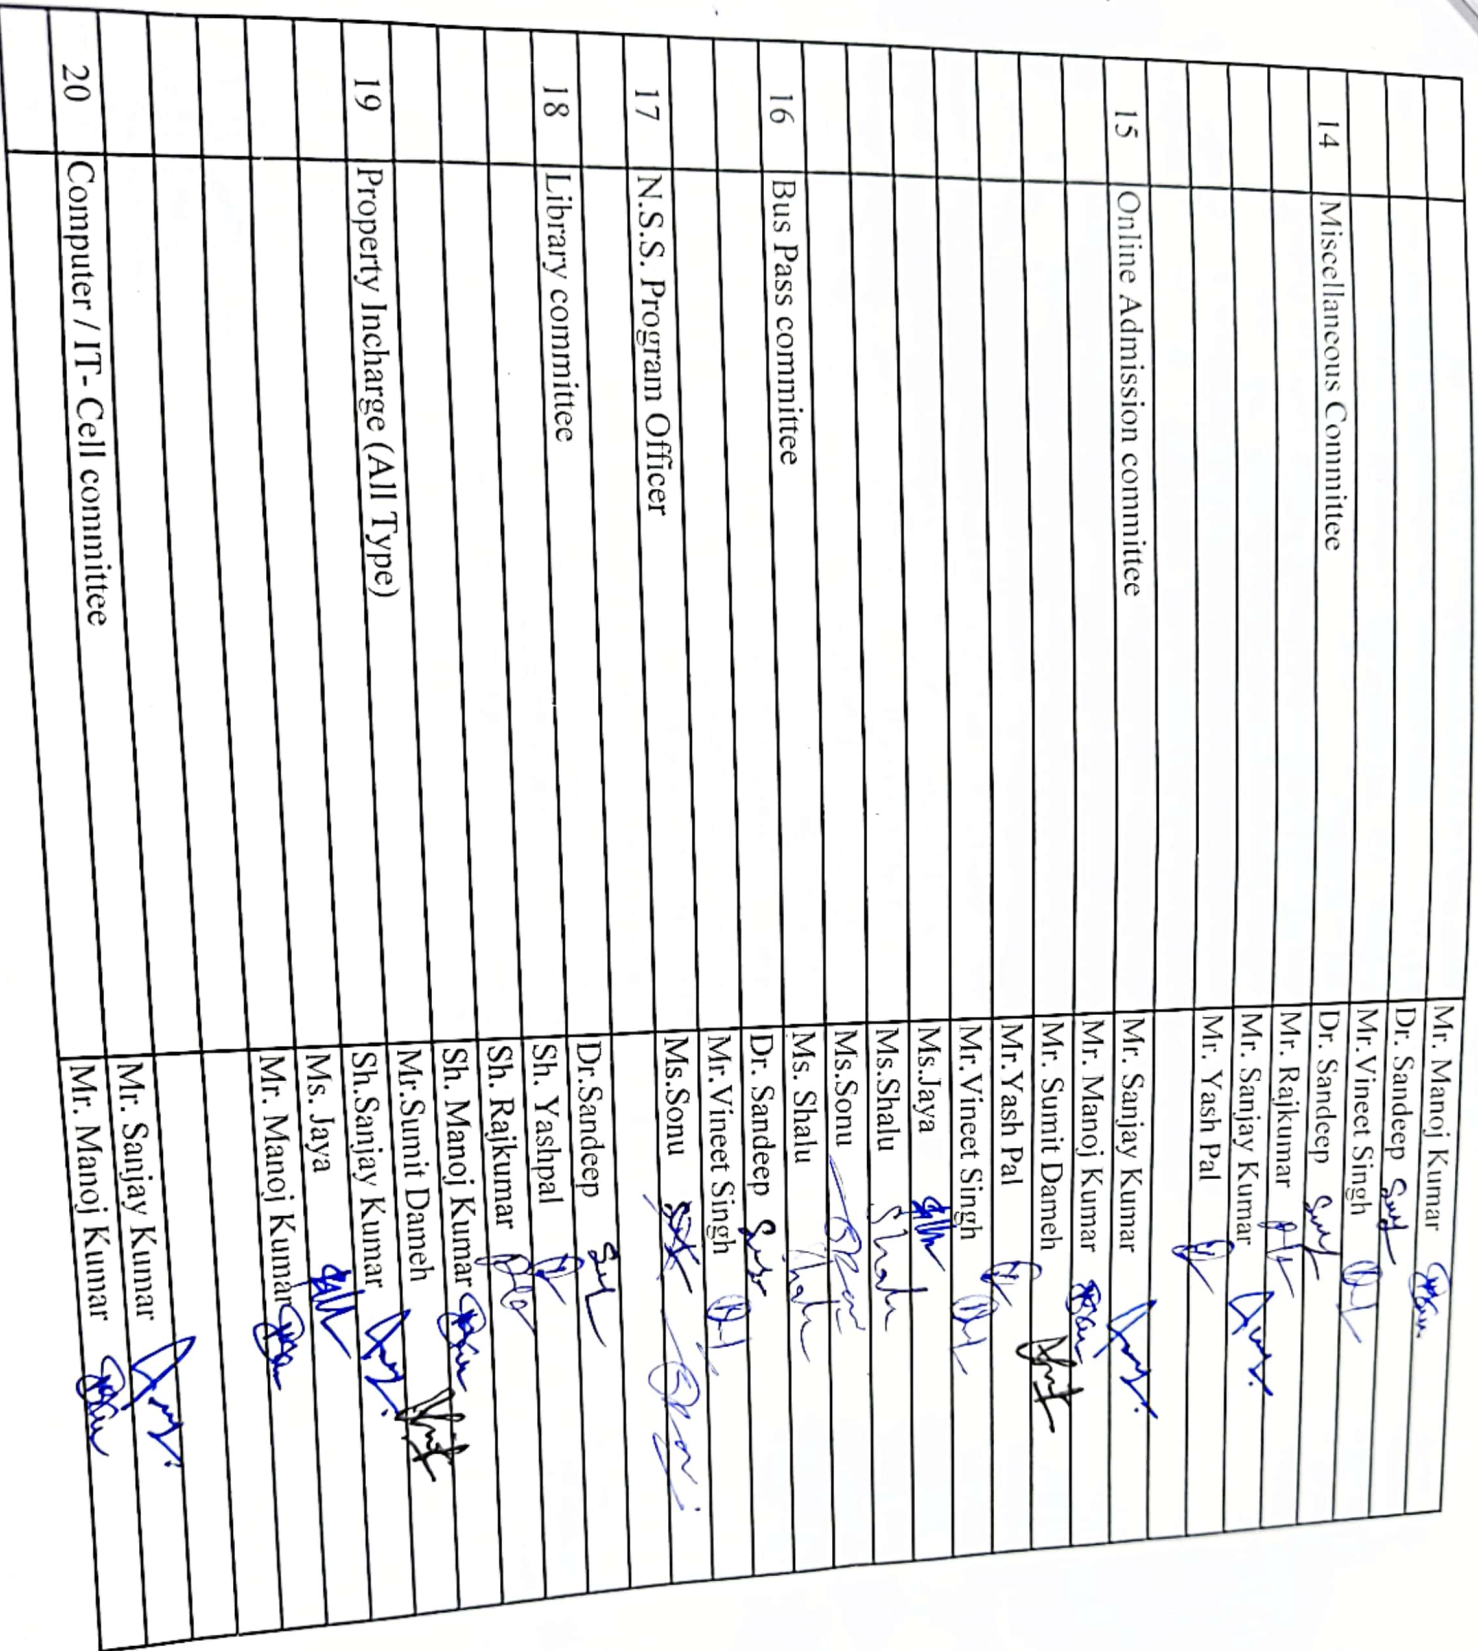 Mr. Manoj Kumar
Dr. Sandeep
Mr.Vineet Singh
14 Miscellaneous Committee Dr. Sandeep
Mr. Rajkumar
Mr. Sanjay Kumar
Mr. Yash Pal
15 Online Admission committee Mr. Sanjay Kumar
Mr. Manoj Kumar
Mr. Sumit Dameh
Mr.Yash Pal
Mr.Vineet Singh
Ms.Jaya
Ms.Shalu
Ms.Sonu
16 Bus Pass committee Ms. Shalu
Dr. Sandeep
Mr.Vineet Singh
17 N.S.S. Program Officer Ms.Sonu
18 Library committee Dr.Sandeep
Sh. Yashpal
Sh. Rajkumar
Sh. Manoj Kumar
19 Property Incharge (All Type) Mr.Sumit Dameh
Sh.Sanjay Kumar
Ms. Jaya
Mr. Manoj Kumar
20 Computer / IT- Cell committee Mr. Sanjay Kumar
Mr. Manoj Kumar